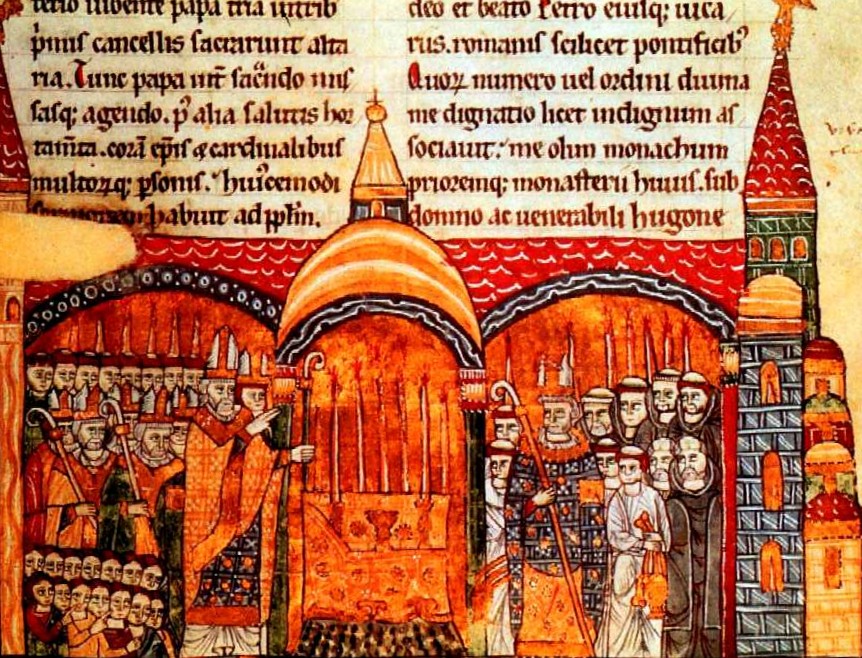 terio iubente papa tria in trib
p̄mis cancellis sacrarunt alta
ria. Tunc papa int̄ sac̄ndo mis
sasq; agendo. p̄ alia salutis hor
tam̄ta. corā ep̄is ⁊ cardinalibus
multorq; p̄sonis. hui'cemodi
habuit ad pp̄lm.
deo et beato Petro eiusq; uica
riis. romanis scilicet pontificib'
Quor numero uel ordini diuina
me dignatio licet indignum as
sociauit. me olim monachum
prioremq; monasterii huius. sub
domno ac uenerabili hugone